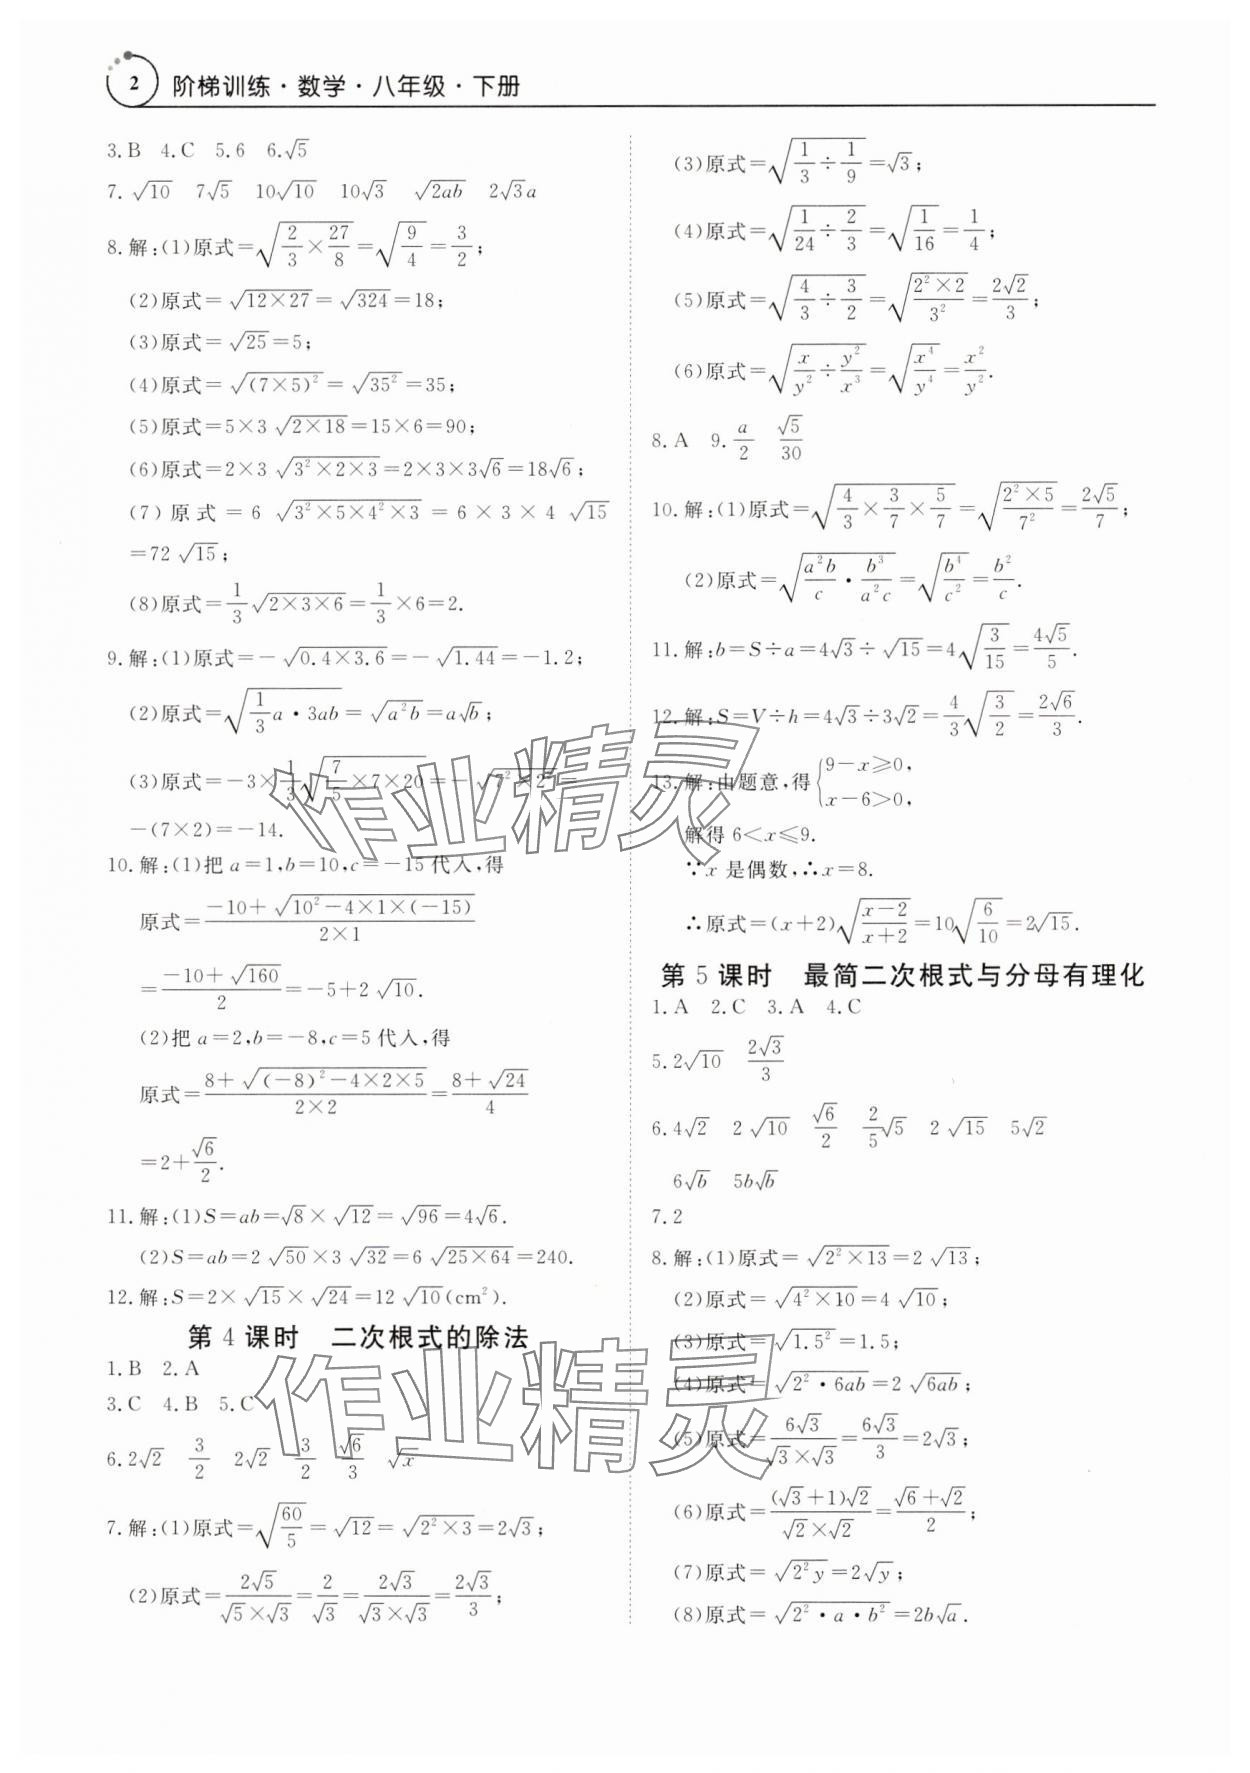 2 阶梯训练·数学·八年级·下册
3.B 4.C 5.6 6.√5
7.√10 7√5 10√10 10√3 √(2ab) 2√3a
8.解:(1)原式=√(2/3×27/8)=√(9/4)=3/2;
(2)原式=√(12×27)=√324=18;
(3)原式=√25=5;
(4)原式=√((7×5)²)=√(35²)=35;
(5)原式=5×3√(2×18)=15×6=90;
(6)原式=2×3√(3²×2×3)=2×3×3√6=18√6;
(7)原式=6√(3²×5×4²×3)=6×3×4√15
=72√15;
(8)原式=1/3√(2×3×6)=1/3×6=2.
9.解:(1)原式=-√(0.4×3.6)=-√1.44=-1.2;
(2)原式=√(1/3a·3ab)=√(a²b)=a√b;
(3)原式=-3×1/3√(7/5×7×20)=-√(7²×2²)=
-(7×2)=-14.
10.解:(1)把a=1,b=10,c=-15代入,得
原式=(-10+√(10²-4×1×(-15)))/(2×1)
=(-10+√160)/2=-5+2√10.
(2)把a=2,b=-8,c=5代入,得
原式=(8+√((-8)²-4×2×5))/(2×2)=(8+√24)/4
=2+√6/2.
11.解:(1)S=ab=√8×√12=√96=4√6.
(2)S=ab=2√50×3√32=6√(25×64)=240.
12.解:S=2×√15×√24=12√10(cm²).
第4课时 二次根式的除法
1.B 2.A
3.C 4.B 5.C
6.2√2 3/2 2√2 3/2 √6/3 √x
7.解:(1)原式=√(60/5)=√12=√(2²×3)=2√3;
(2)原式=2√5/(√5×√3)=2/√3=2√3/(√3×√3)=2√3/3;
(3)原式=√(1/3÷1/9)=√3;
(4)原式=√(1/24÷2/3)=√(1/16)=1/4;
(5)原式=√(4/3÷3/2)=√((2²×2)/3²)=2√2/3;
(6)原式=√(x/y²÷y²/x³)=√(x⁴/y⁴)=x²/y².
8.A 9.a/2 √5/30
10.解:(1)原式=√(4/3×3/7×5/7)=√((2²×5)/7²)=2√5/7;
(2)原式=√(a²b/c·b³/a²c)=√(b⁴/c²)=b²/c.
11.解:b=S÷a=4√3÷√15=4√(3/15)=4√5/5.
12.解:S=V÷h=4√3÷3√2=4/3√(3/2)=2√6/3.
13.解:由题意,得{9-x≥0,
x-6>0,
解得6<x≤9.
∵x是偶数,∴x=8.
∴原式=(x+2)√((x-2)/(x+2))=10√(6/10)=2√15.
第5课时 最简二次根式与分母有理化
1.A 2.C 3.A 4.C
5.2√10 2√3/3
6.4√2 2√10 √6/2 2/5√5 2√15 5√2
6√b 5b√b
7.2
8.解:(1)原式=√(2²×13)=2√13;
(2)原式=√(4²×10)=4√10;
(3)原式=√(1.5²)=1.5;
(4)原式=√(2²·6ab)=2√(6ab);
(5)原式=6√3/(√3×√3)=6√3/3=2√3;
(6)原式=(√3+1)√2/(√2×√2)=(√6+√2)/2;
(7)原式=√(2²y)=2√y;
(8)原式=√(2²·a·b²)=2b√a.
作业精灵
作业精灵